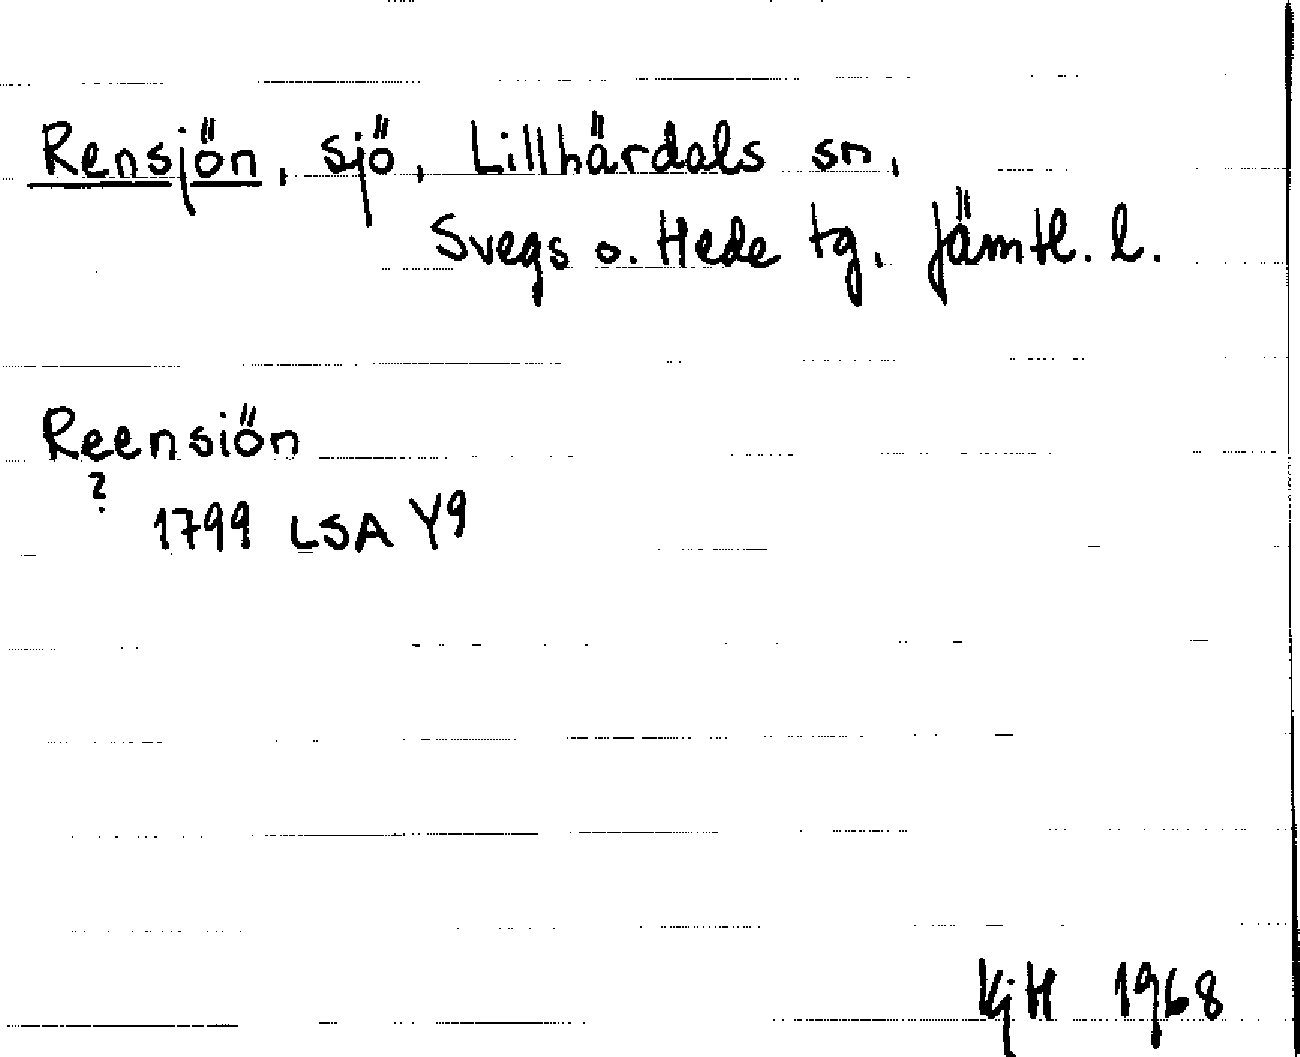 Rensjön, sjö, Lillhärdals sn,
Svegs o. Hede tg, Jämtl. l.
Reensiön
?
1799 LSA Y9
KjH 1968